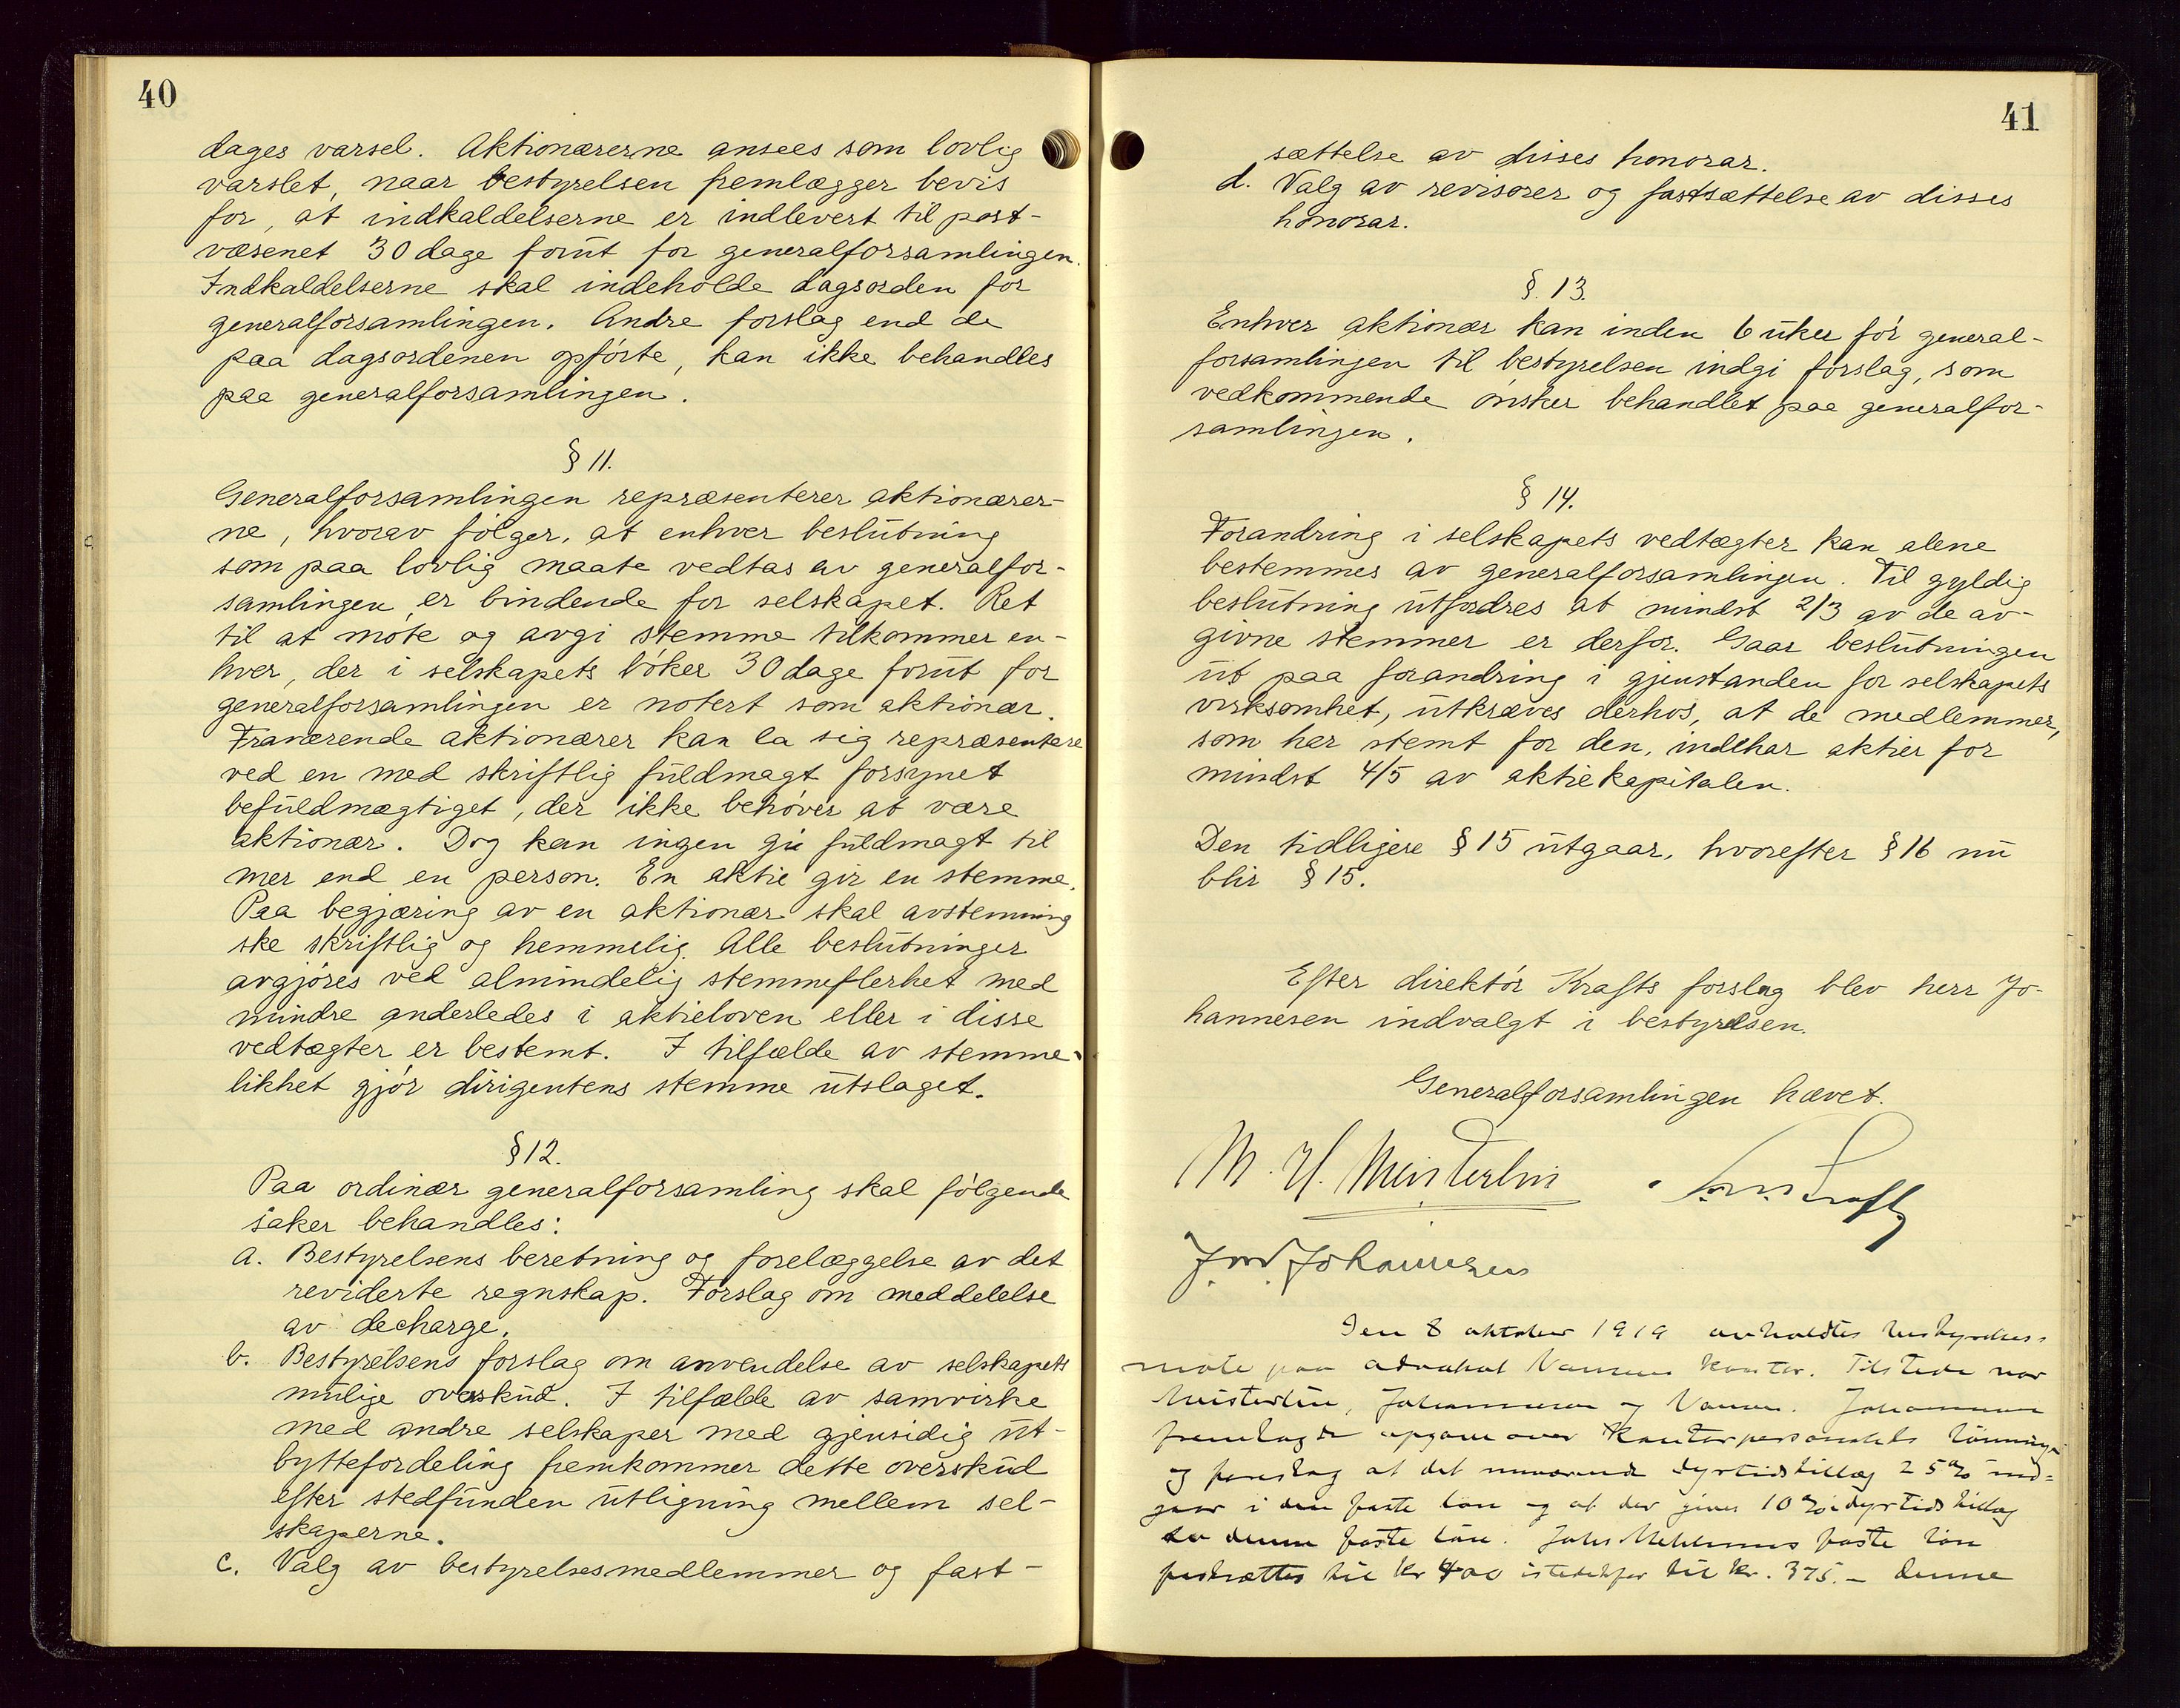 40
dages varsel. Aktionærerne ansees som lovlig
varslet, naar bestyrelsen fremlægger bevis
for, at indkaldelserne er indlevert til post-
væsenet 30 dage forut for generalforsamlingen.
Indkaldelserne skal indeholde dagsorden for
generalforsamlingen. Andre forslag end de
paa dagsordenen opførte, kan ikke behandles
paa generalforsamlingen.
§ 11.
Generalforsamlingen repræsenterer aktionærer-
ne, hvorav følger, at enhver beslutning
som paa lovlig maate vedtas av generalfor-
samlingen er bindende for selskapet. Ret
til at møte og avgi stemme tilkommer en-
hver, der i selskapets bøker 30 dage forut for
generalforsamlingen er notert som aktionær.
Fraværende aktionærer kan la sig repræsentere
ved en med skriftlig fuldmagt forsynet
befuldmægtiget, der ikke behøver at være
aktionær. Dog kan ingen gi fuldmagt til
mer end en person. En aktie gir en stemme.
Paa begjæring av en aktionær skal avstemning
ske skriftlig og hemmelig. Alle beslutninger
avgjøres ved almindelig stemmeflerhet med
mindre anderledes i aktieloven eller i disse
vedtægter er bestemt. I tilfælde av stemme-
likhet gjør dirigentens stemme utslaget.
§ 12.
Paa ordinær generalforsamling skal følgende
saker behandles:
a. Bestyrelsens beretning og forelæggelse av det
reviderte regnskap. Forslag om meddelelse
av decharge.
b. Bestyrelsens forslag om anvendelse av selskapets
mulige overskud. I tilfælde av samvirke
med andre selskaper med gjensidig ut-
byttefordeling fremkommer dette overskud
efter stedfunden utligning mellem sel-
skaperne.
c. Valg av bestyrelsesmedlemmer og fast-
41
sættelse av disses honorar.
d. Valg av revisorer og fastsættelse av disses
honorar.
§. 13.
Enhver aktionær kan inden 6 uker før general-
forsamlingen til bestyrelsen indgi forslag, som
vedkommende ønsker behandlet paa generalfor-
samlingen.
§ 14.
Forandring i selskapets vedtægter kan alene
bestemmes av generalforsamlingen. Til gyldig
beslutning utfordres at mindst 2/3 av de av-
givne stemmer er derfor. Gaar beslutningen
ut paa forandring i gjenstanden for selskapets
virksomhet, utkræves derhos, at de medlemmer,
som har stemt for den, indehar aktier for
mindst 4/5 av aktiekapitalen.
Den tidligere § 15 utgaar, hvorefter § 16 nu
blir § 15.
Efter direktør Krafts forslag blev herr Jo-
hannesen indvalgt i bestyrelsen.
Generalforsamlingen hævet.
M. H. Meisterlin
Kraft
Joh. Johannesen
Den 8 oktober 1919 avholdtes bestyrelses-
møte paa advokat Nansens kontor. Tilstede var
Meisterlin, Johannesen og Nansen. Johannesen
fremlagde opgave over kontorpersonalets lønninger
og foreslog at det nuværende dyrtidstillæg 25% ind-
gaar i den faste løn og at der gives 10% dyrtidstillæg
av denne faste løn. faste løn
fastsættes til kr 400 istedetfor til kr. 375.- Denne